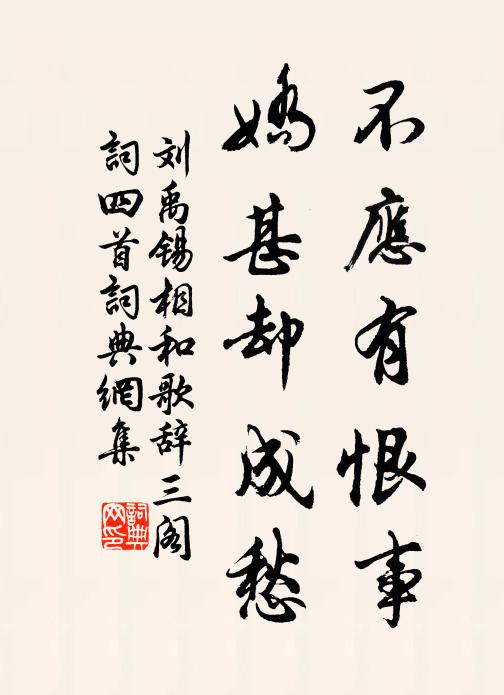 不應有恨事
嬌甚却成愁
刘禹锡相和歌辞三阁
詞四首詞典網集
詞典
网印